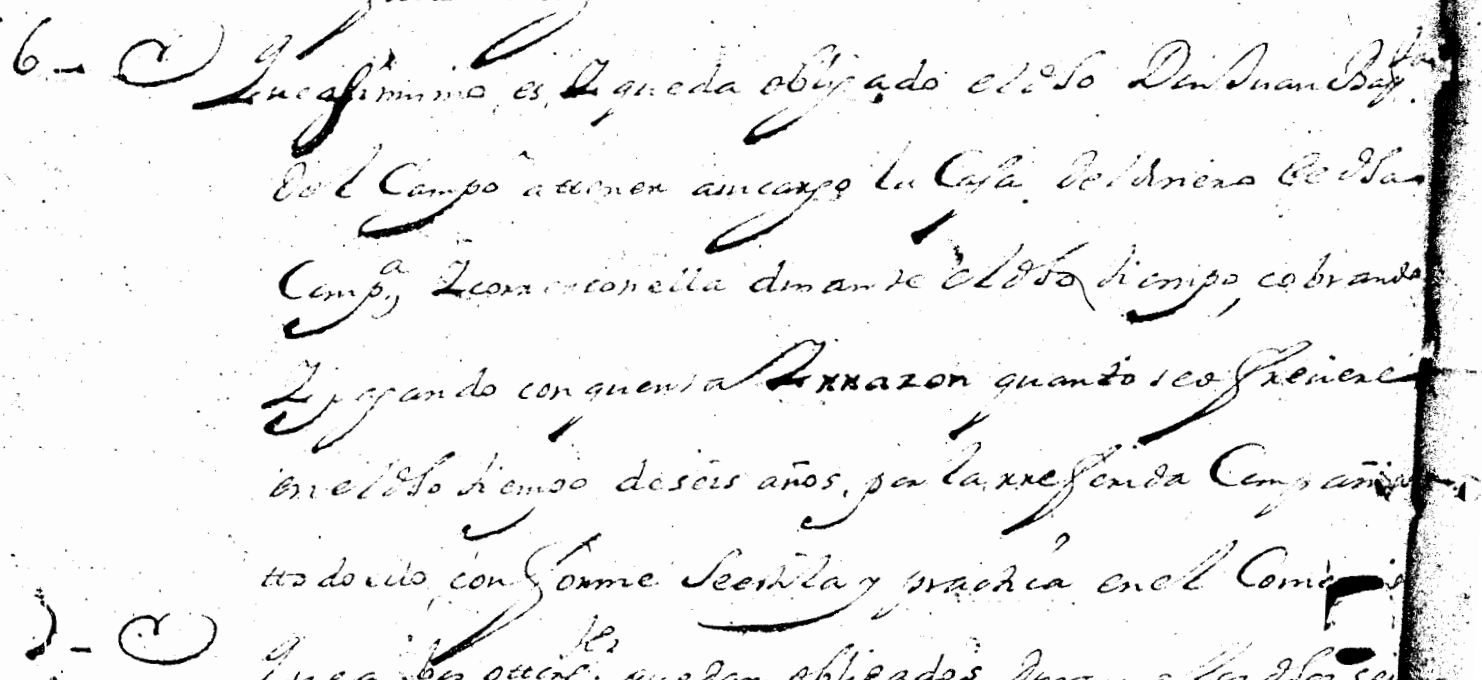 6 - Queasimimo es, Y queda obligado el dho Don Juan Bapta
del Campo a ttener asu cargo la Casa del dinero de dha
Compa Y correr con ella durante el dho tiempo, cobrando
Y pagando con quenta Y rrazon quanto se ofreciere
en el dho tiempo de seis años, por la rreferida Compañia
ttodo ello conforme Seestila y practica en el Comercio
7 - quedan obligados